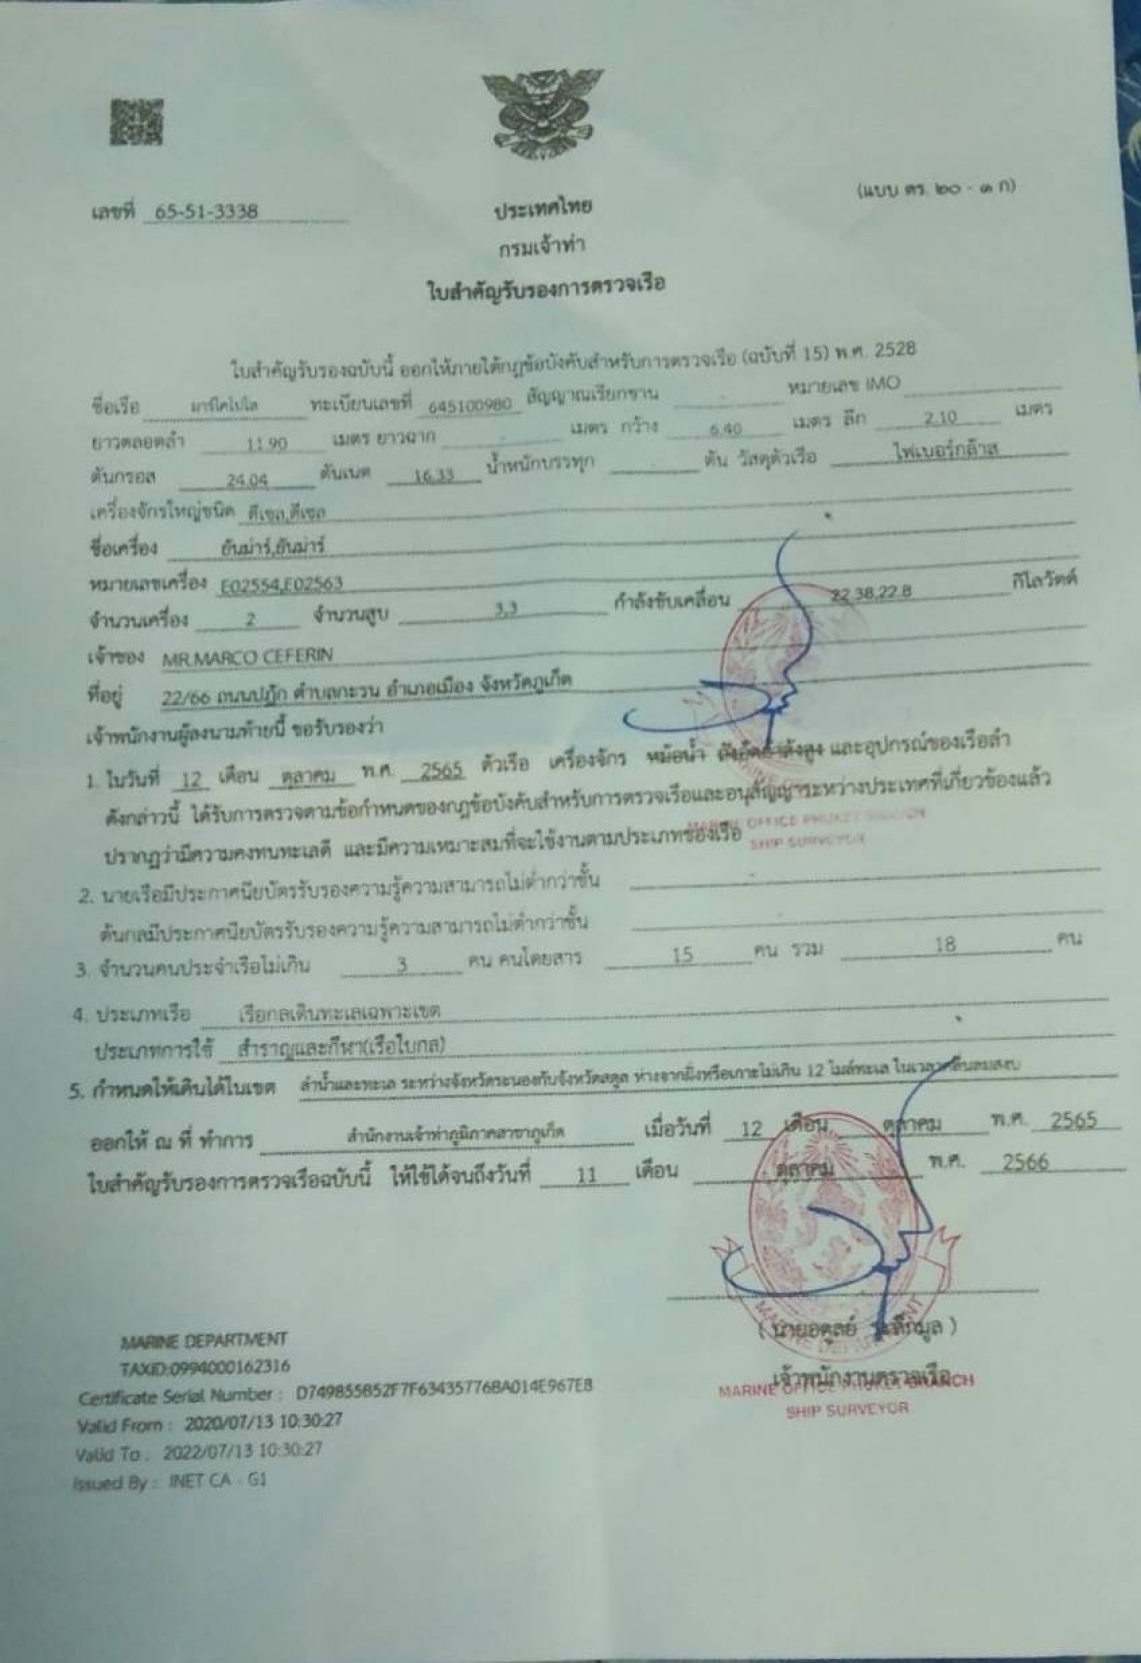 (แบบ ตร. ๒๐ - ๑ ก)
เลขที่ 65-51-3338
ประเทศไทย
กรมเจ้าท่า
ใบสำคัญรับรองการตรวจเรือ
ใบสำคัญรับรองฉบับนี้ ออกให้ภายใต้กฎข้อบังคับสำหรับการตรวจเรือ (ฉบับที่ 15) พ.ศ. 2528
ชื่อเรือ มาร์โคโปโล ทะเบียนเลขที่ 645100980 สัญญาณเรียกขาน - หมายเลข IMO
ยาวตลอดลำ 11.90 เมตร ยาวฉาก - เมตร กว้าง 6.40 เมตร ลึก 2.10 เมตร
ตันกรอส 24.04 ตันเนต 16.33 น้ำหนักบรรทุก ตัน วัสดุตัวเรือ ไฟเบอร์กล๊าส
เครื่องจักรใหญ่ชนิด ดีเซล,ดีเซล
ชื่อเครื่อง ยันม่าร์,ยันม่าร์
หมายเลขเครื่อง E02554,E02563
จำนวนเครื่อง 2 จำนวนสูบ 3,3 กำลังขับเคลื่อน 22.38,22.8 กิโลวัตต์
เจ้าของ MR.MARCO CEFERIN
ที่อยู่ 22/66 ถนนปฏัก ตำบลกะรน อำเภอเมือง จังหวัดภูเก็ต
เจ้าพนักงานผู้ลงนามท้ายนี้ ขอรับรองว่า
1. ในวันที่ 12 เดือน ตุลาคม พ.ศ. 2565 ตัวเรือ เครื่องจักร หม้อน้ำ ถังอัดกำลังสูง และอุปกรณ์ของเรือลำ
ดังกล่าวนี้ ได้รับการตรวจตามข้อกำหนดของกฎข้อบังคับสำหรับการตรวจเรือและอนุสัญญาระหว่างประเทศที่เกี่ยวข้องแล้ว
ปรากฏว่ามีความคงทนทะเลดี และมีความเหมาะสมที่จะใช้งานตามประเภทของเรือ
MARINE OFFICE PHUKET BRANCH
SHIP SURVEYOR
2. นายเรือมีประกาศนียบัตรรับรองความรู้ความสามารถไม่ต่ำกว่าชั้น -
ต้นกลมีประกาศนียบัตรรับรองความรู้ความสามารถไม่ต่ำกว่าชั้น
3. จำนวนคนประจำเรือไม่เกิน 3 คน คนโดยสาร 15 คน รวม 18 คน
4. ประเภทเรือ เรือกลเดินทะเลเฉพาะเขต
ประเภทการใช้ สำราญและกีฬา(เรือใบกล)
5. กำหนดให้เดินได้ในเขต ลำน้ำและทะเล ระหว่างจังหวัดระนองกับจังหวัดสตูล ห่างจากฝั่งหรือเกาะไม่เกิน 12 ไมล์ทะเล ในเวลาคลื่นลมสงบ
ออกให้ ณ ที่ ทำการ สำนักงานเจ้าท่าภูมิภาคสาขาภูเก็ต เมื่อวันที่ 12 เดือน ตุลาคม พ.ศ. 2565
ใบสำคัญรับรองการตรวจเรือฉบับนี้ ให้ใช้ได้จนถึงวันที่ 11 เดือน ตุลาคม พ.ศ. 2566
MARINE DEPARTMENT
( นายอดุลย์ )
เจ้าพนักงานตรวจเรือ
MARINE OFFICE PHUKET BRANCH
SHIP SURVEYOR
MARINE DEPARTMENT
TAXID:0994000162316
Certificate Serial Number : D749855B52F7F63435776BA014E967E8
Valid From : 2020/07/13 10:30:27
Valid To : 2022/07/13 10:30:27
Issued By : INET CA - G1